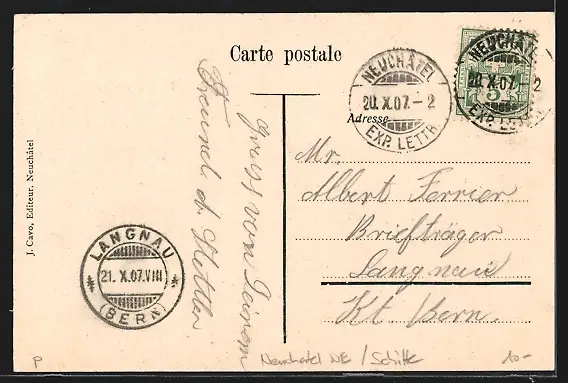 Carte postale
NEUCHÂTEL
20.X.07.-2
EXP. LETTR.
NEUCHÂTEL
20.X.07.-2
EXP. LETTR.
5
Adresse
Mr.
Albert Ferrier
Briefträger
Langnau
Kt. Bern.
Gruss von Deinem
Freund A.
LANGNAU
21.X.07.VIII
(BERN)
J. Cavo, Editeur, Neuchâtel
P
Neuchatel NE / Schiffe
10.-